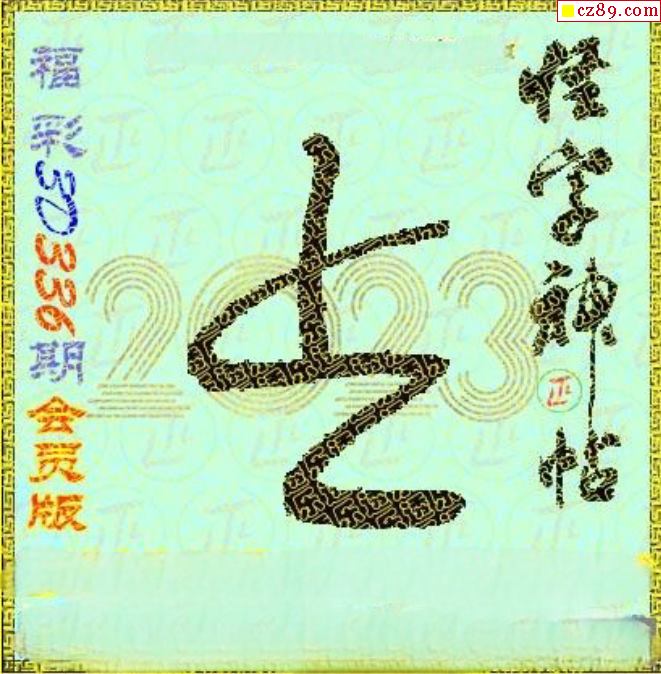 cz89.com
福彩3D336期会员版
怪字神帖
正
2023